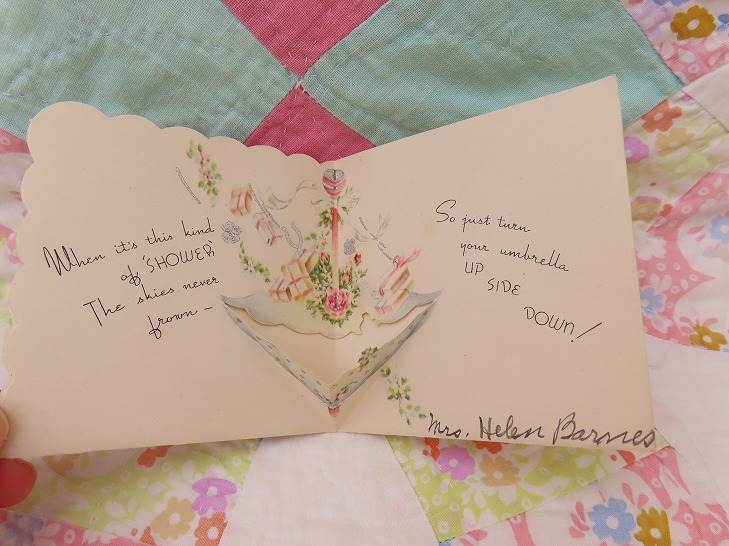 When it's this kind
of "SHOWER"
The skies never
frown –
So just turn
your umbrella
UP
SIDE
DOWN!
Mrs. Helen Barnes